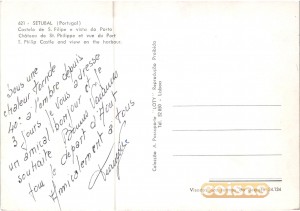 601 - SETUBAL (Portugal)
Castelo de S. Filipe e vista do Porto
Château de St. Philippe et vue du Port
S. Philip Castle and view on the harbour.
Sous une
chaleur torride
40° à l'ombre depuis
3 jours je vous adresse
un amical bonjour et je
souhaite
tous le départ d'Août
Amicalement à tous
Colecção A. Passaporte "LOTY" - Reprodução Proibida
Lisboa
coisas